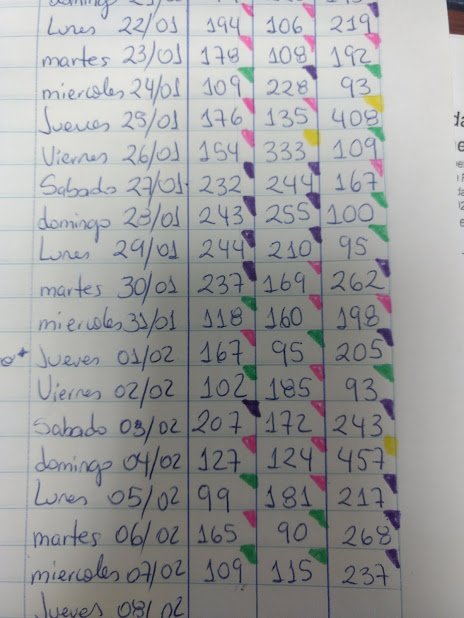 Lunes 22/01 194 106 219
martes 23/01 178 108 192
miercoles 24/01 109 228 93
Jueves 25/01 176 135 408
Viernes 26/01 154 333 109
Sabado 27/01 232 244 167
domingo 28/01 243 255 100
Lunes 29/01 244 210 95
martes 30/01 237 169 262
miercoles 31/01 118 160 198
Jueves 01/02 167 95 205
Viernes 02/02 102 185 93
Sabado 03/02 207 172 243
domingo 04/02 127 124 457
Lunes 05/02 99 181 217
martes 06/02 165 90 268
miercoles 07/02 109 115 237
Jueves 08/02